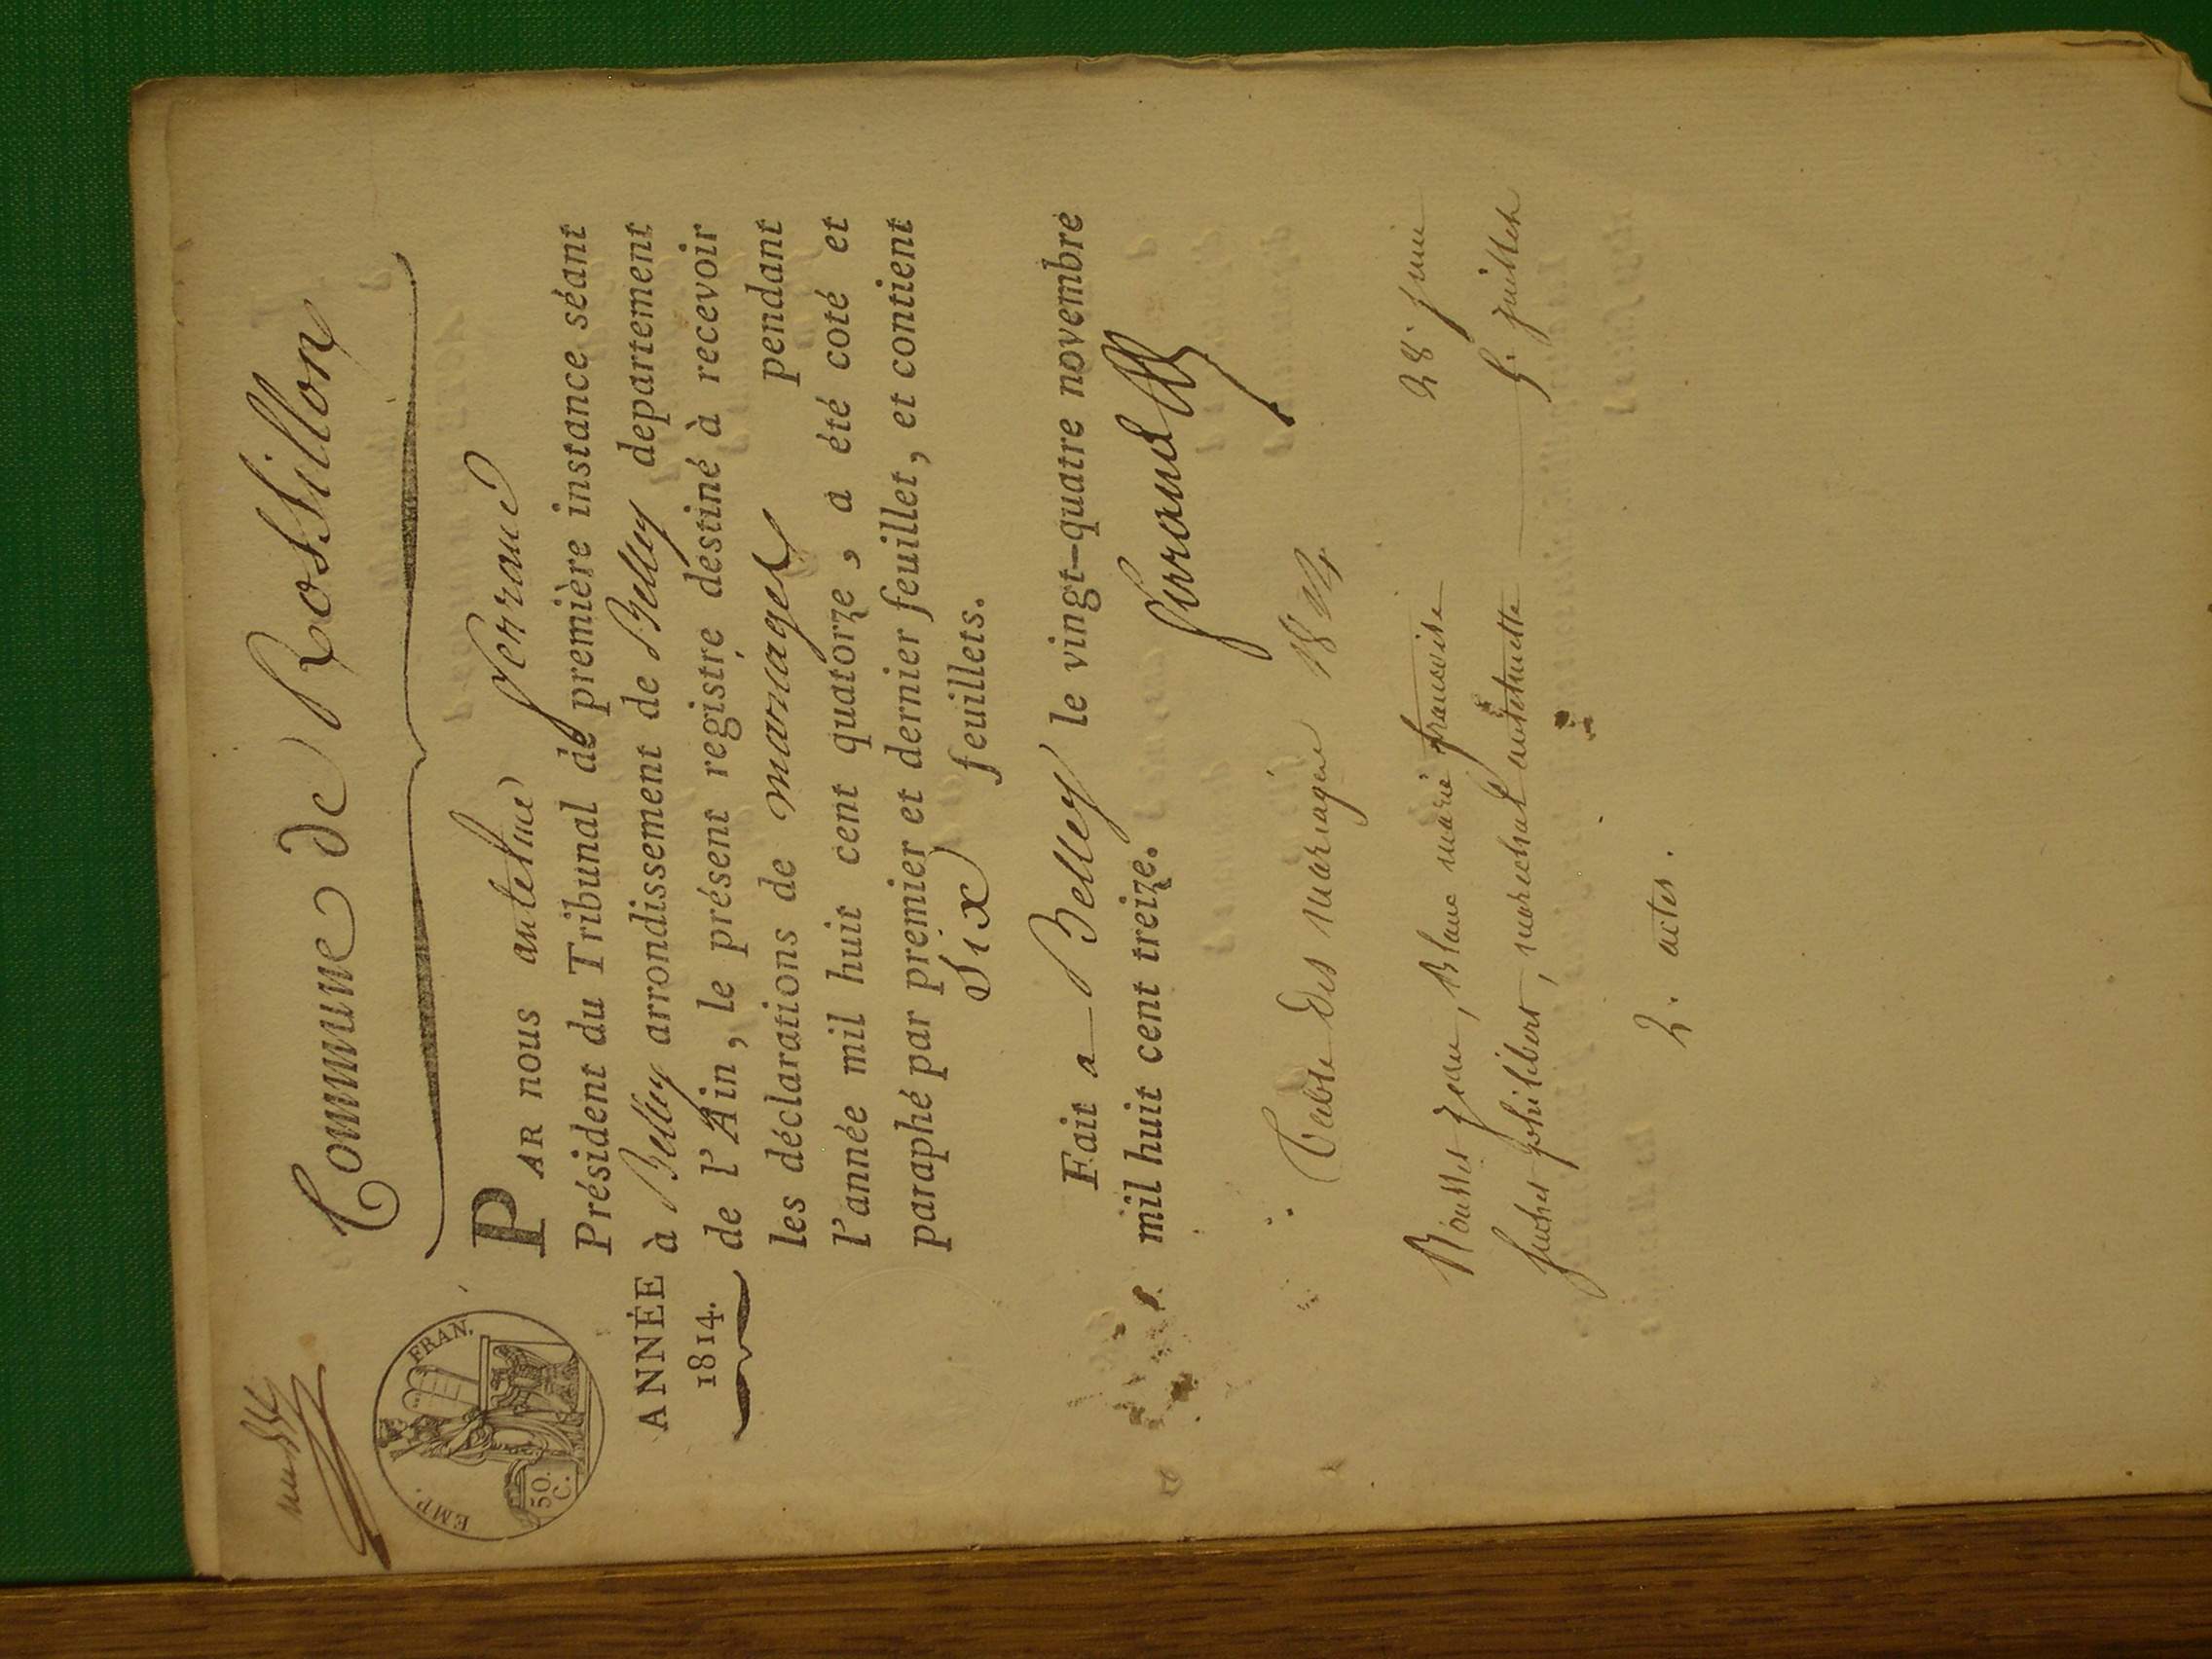 Commune de Rossillon
EMP. FRAN.
50.
C.
ANNÉE
1814.
PAR nous antelme ferrand
Président du Tribunal de première instance séant
à Belley arrondissement de Belley département
de l'Ain, le présent registre destiné à recevoir
les déclarations de mariages pendant
l'année mil huit cent quatorze, a été coté et
paraphé par premier et dernier feuillet, et contient
Six feuillets.
Fait a Belley le vingt-quatre novembre
mil huit cent treize.
ferrand
Table des mariages 1814
Rousset jean, Blanc marie francoise 28. juin
philibert, marechal antoinette 5. juillet
2. actes.